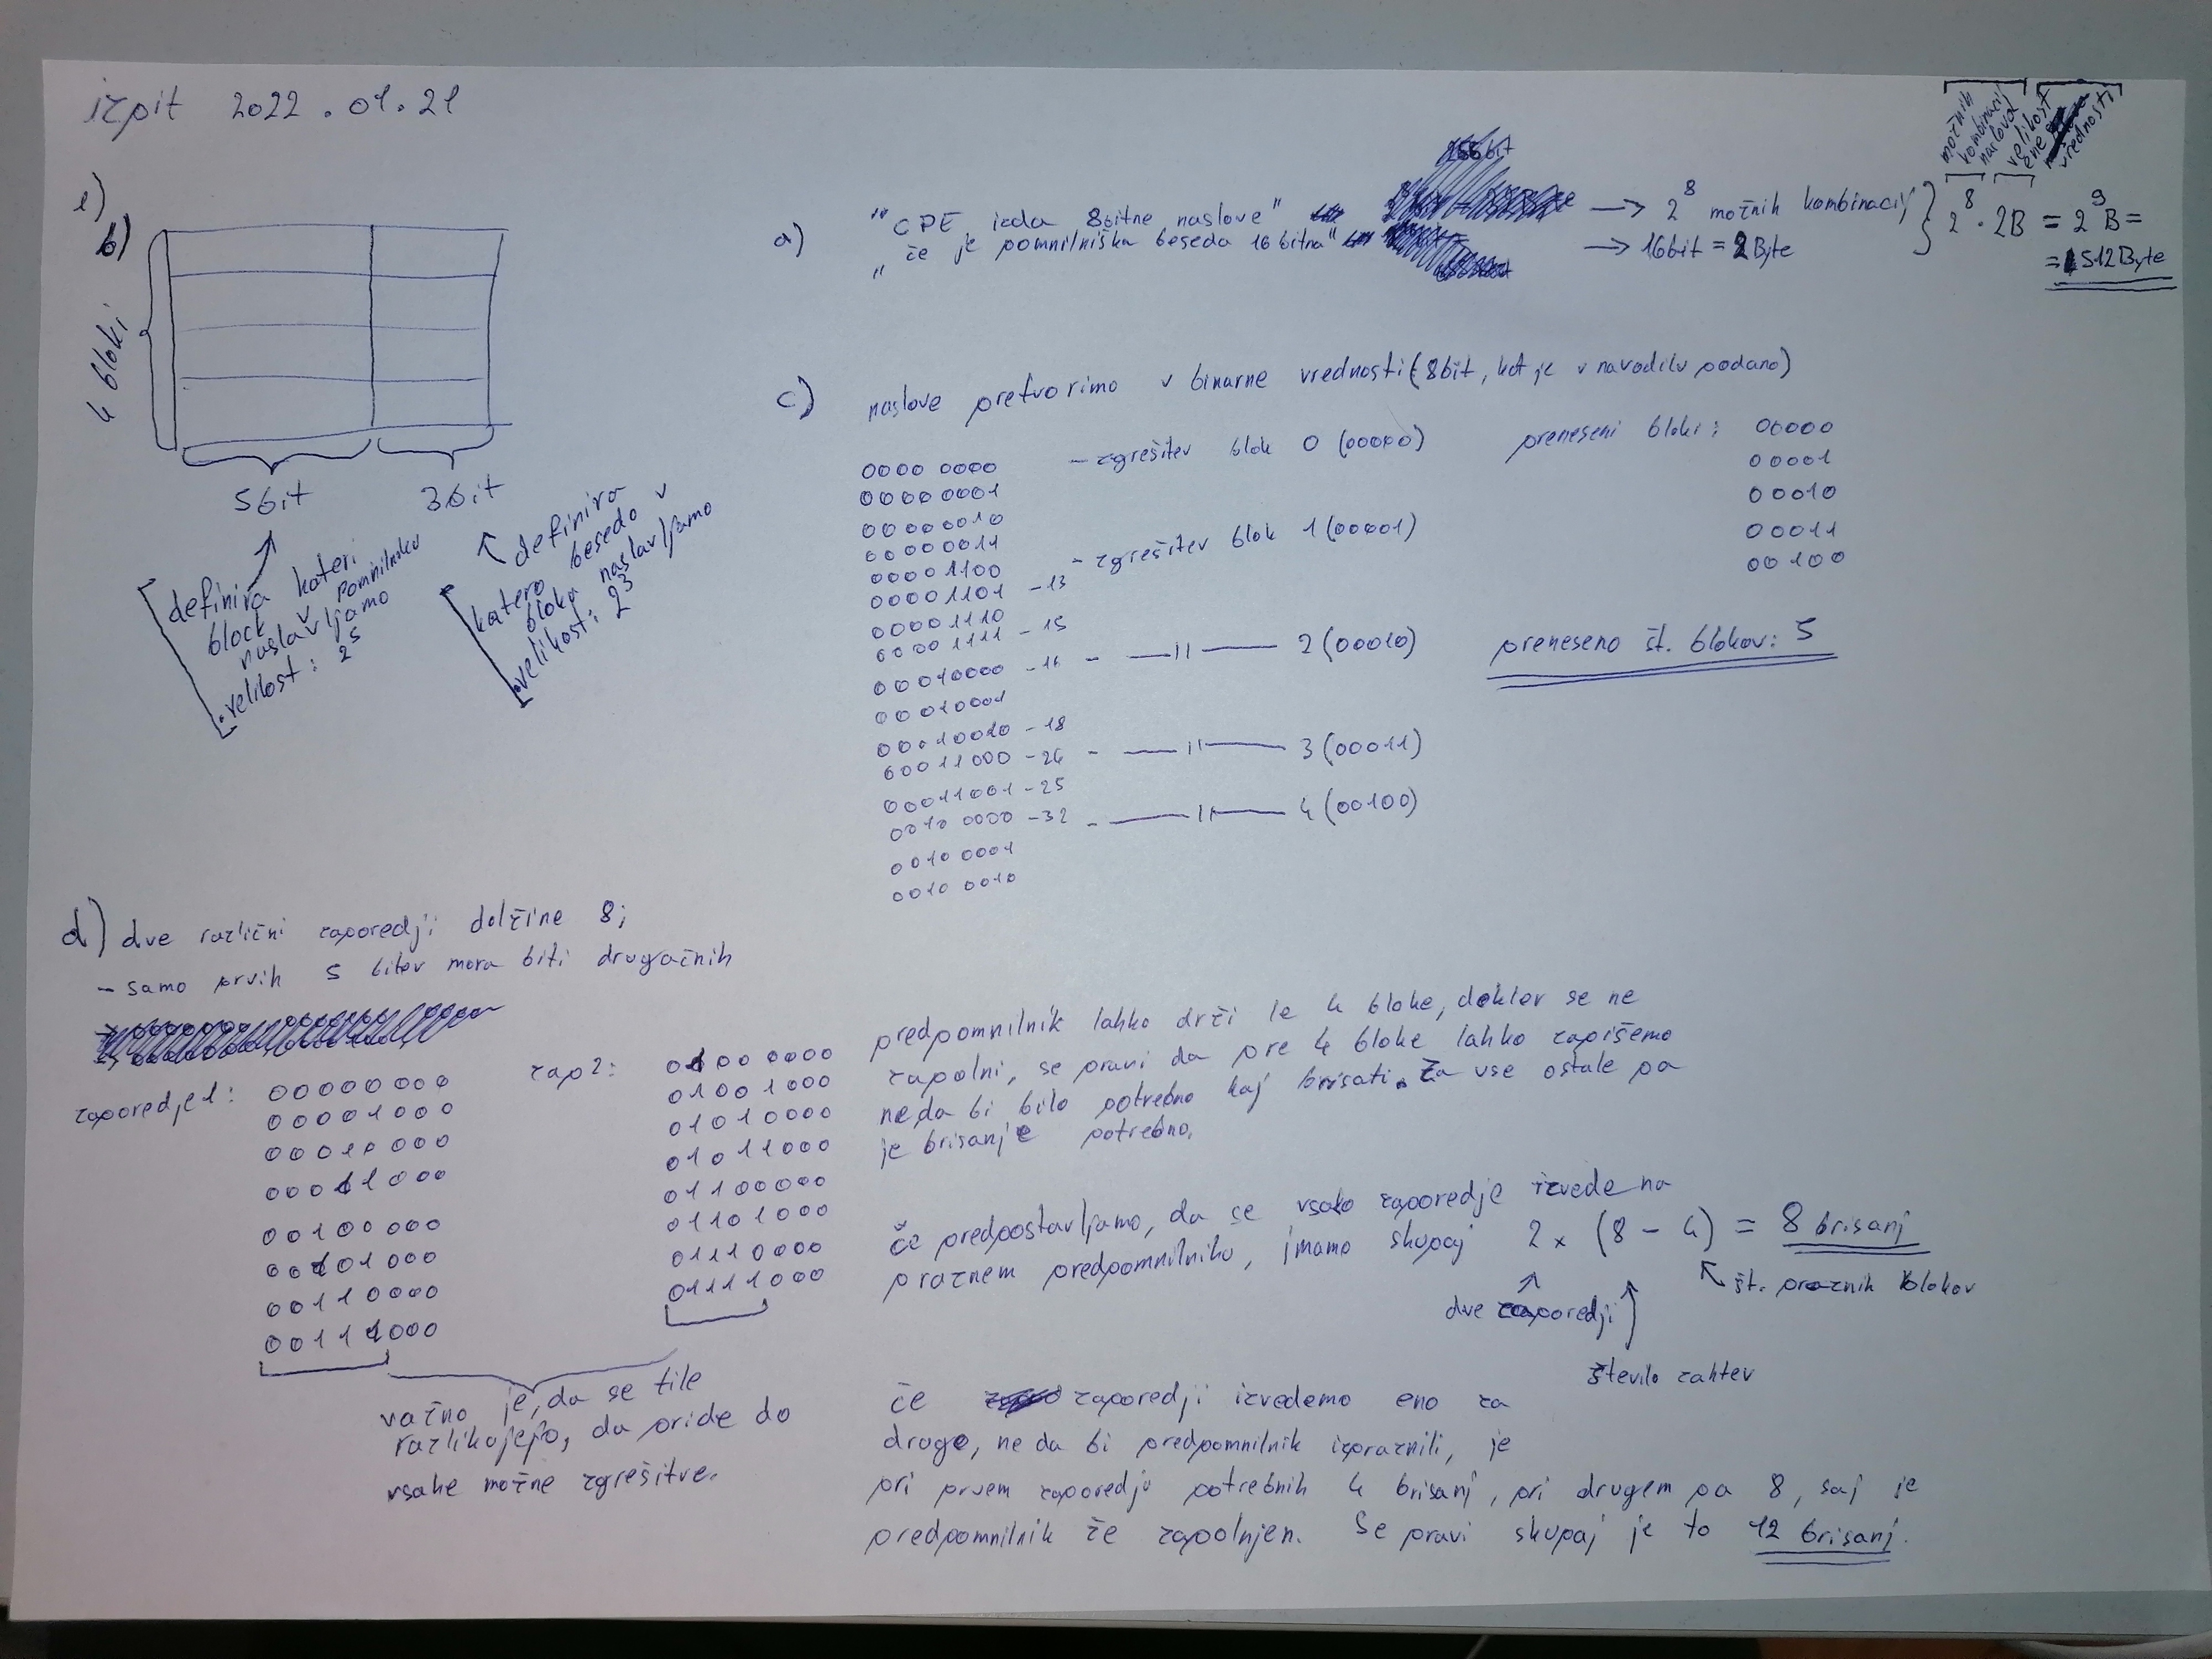 izpit 2022.01.21
1)
b)
4 bloki
5bit
3bit
definira kateri
block v pomnilniku
naslavljamo
velikost: 2^5
definira
katero besedo v
bloku naslavljamo
velikost: 2^3
a)
"CPE izda 8bitne naslove" → 2^8 možnih kombinacij
"če je pomnilniška beseda 16 bitna" → 16bit = 2Byte
2^8 · 2B = 2^9 B =
= 512Byte
možnih
kombinacij
naslova
velikost
ene
vrednosti
c)
naslove pretvorimo v binarne vrednosti (8bit, kot je v navodilu podano)
0000 0000 - zgrešitev blok 0 (00000)
0000 0001
0000 0010
0000 0011
0000 1100 - zgrešitev blok 1 (00001)
0000 1101 - 13
0000 1110
0000 1111 - 15
00010000 - 16 - —11— 2 (00010)
00010001
00010010 - 18
00011000 - 24 - —11— 3 (00011)
00011001 - 25
0010 0000 - 32 - —11— 4 (00100)
0010 0001
0010 0010
preneseni bloki: 00000
00001
00010
00011
00100
preneseno št. blokov: 5
d) dve različni zaporedji dolžine 8;
- samo prvih 5 bitov mora biti drugačnih
zaporedje1: 00000000
00001000
00010000
00011000
00100000
00101000
00110000
00111000
zap2: 0100 0000
01001000
01010000
01011000
01100000
01101000
01110000
01111000
važno je, da se tile
razlikujejo, da pride do
vsake možne zgrešitve.
predpomnilnik lahko drži le 4 bloke, dokler se ne
zapolni, se pravi da pre 4 bloke lahko zapišemo
ne da bi bilo potrebno kaj brisati. Za vse ostale pa
je brisanje potrebno.
če predpostavljamo, da se vsako zaporedje izvede na
praznem predpomnilniku, imamo skupaj 2 x (8 - 4) = 8 brisanj
dve zaporedji
število zahtev
št. praznih blokov
če zaporedji izvedemo eno za
drugo, ne da bi predpomnilnik izpraznili, je
pri prvem zaporedju potrebnih 4 brisanj, pri drugem pa 8, saj je
predpomnilnik že zapolnjen. Se pravi skupaj je to 12 brisanj.